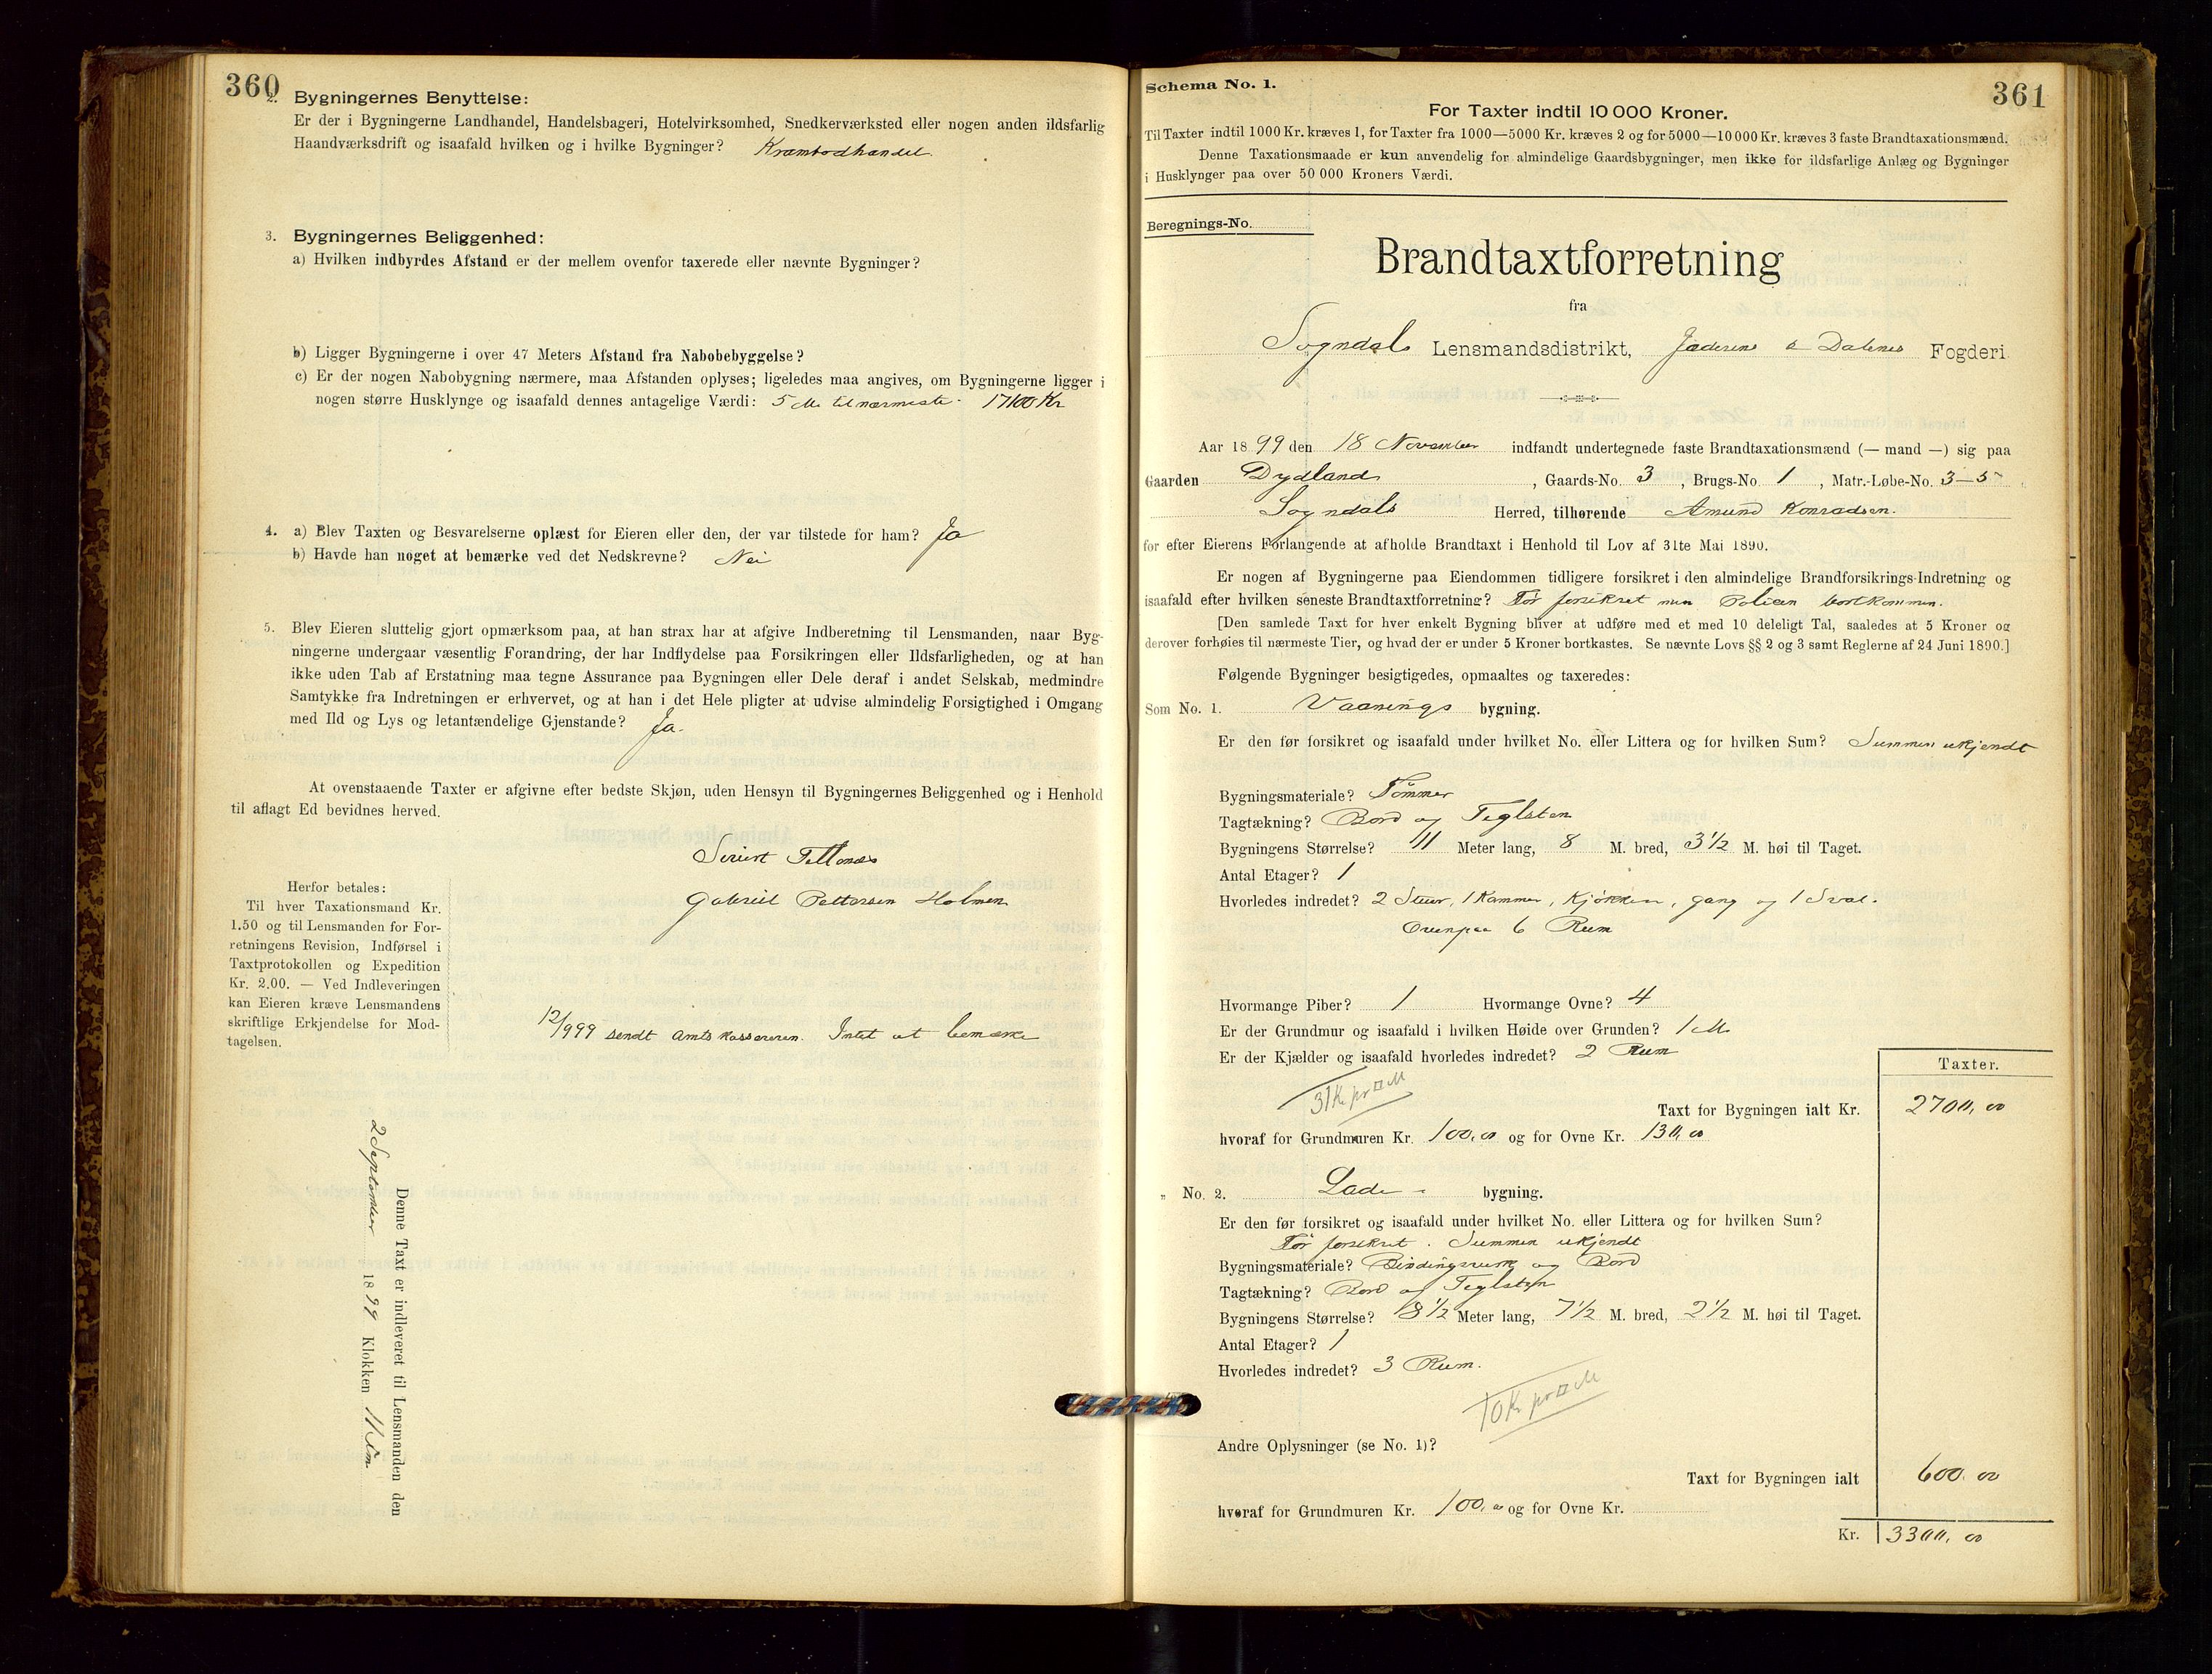 360
2. Bygningernes Benyttelse:
Er der i Bygningerne Landhandel, Handelsbageri, Hotelvirksomhed, Snedkerværksted eller nogen anden ildsfarlig
Haandværksdrift og isaafald hvilken og i hvilke Bygninger? Krambodhandel.
3. Bygningernes Beliggenhed:
a) Hvilken indbyrdes Afstand er der mellem ovenfor taxerede eller nævnte Bygninger?
b) Ligger Bygningerne i over 47 Meters Afstand fra Nabobebyggelse?
c) Er der nogen Nabobygning nærmere, maa Afstanden oplyses; ligeledes maa angives, om Bygningerne ligger i
nogen større Husklynge og isaafald dennes antagelige Værdi: 5 M. til nærmeste. 17100 Kr
4. a) Blev Taxten og Besvarelserne oplæst for Eieren eller den, der var tilstede for ham? Ja
b) Havde han noget at bemærke ved det Nedskrevne? Nei
5. Blev Eieren sluttelig gjort opmærksom paa, at han strax har at afgive Indberetning til Lensmanden, naar Byg-
ningerne undergaar væsentlig Forandring, der har Indflydelse paa Forsikringen eller Ildsfarligheden, og at han
ikke uden Tab af Erstatning maa tegne Assurance paa Bygningen eller Dele deraf i andet Selskab, medmindre
Samtykke fra Indretningen er erhvervet, og at han i det Hele pligter at udvise almindelig Forsigtighed i Omgang
med Ild og Lys og letantændelige Gjenstande? Ja.
At ovenstaaende Taxter er afgivne efter bedste Skjøn, uden Hensyn til Bygningernes Beliggenhed og i Henhold
til aflagt Ed bevidnes herved.
Sivert Tellnes
Gabriel Pettersen Holmen
Herfor betales:
Til hver Taxationsmand Kr.
1.50 og til Lensmanden for For-
retningens Revision, Indførsel i
Taxtprotokollen og Expedition
Kr. 2.00. — Ved Indleveringen
kan Eieren kræve Lensmandens
skriftlige Erkjendelse for Mod-
tagelsen.
12/999 sendt Amtskassereren. Intet at bemærke
Denne Taxt er indleveret til Lensmanden den
2 September 1899 Klokken
361
Schema No. 1.
For Taxter indtil 10 000 Kroner.
Til Taxter indtil 1000 Kr. kræves 1, for Taxter fra 1000—5000 Kr. kræves 2 og for 5000—10 000 Kr. kræves 3 faste Brandtaxationsmænd.
Denne Taxationsmaade er kun anvendelig for almindelige Gaardsbygninger, men ikke for ildsfarlige Anlæg og Bygninger
i Husklynger paa over 50 000 Kroners Værdi.
Beregnings-No.
Brandtaxtforretning
fra
Sogndals Lensmandsdistrikt, Jæderens & Dalenes Fogderi
Aar 1899 den 18 November indfandt undertegnede faste Brandtaxationsmænd (— mand —) sig paa
Gaarden Dydland, Gaards-No. 3, Brugs-No. 1, Matr.-Løbe-No. 3–5
Sogndals Herred, tilhørende Amund Konradsen.
for efter Eierens Forlangende at afholde Brandtaxt i Henhold til Lov af 31te Mai 1890.
Er nogen af Bygningerne paa Eiendommen tidligere forsikret i den almindelige Brandforsikrings-Indretning og
isaafald efter hvilken seneste Brandtaxtforretning? Før forsikret men Policen bortkommen.
[Den samlede Taxt for hver enkelt Bygning bliver at udføre med et med 10 deleligt Tal, saaledes at 5 Kroner og
derover forhøies til nærmeste Tier, og hvad der er under 5 Kroner bortkastes. Se nævnte Lovs §§ 2 og 3 samt Reglerne af 24 Juni 1890.]
Følgende Bygninger besigtigedes, opmaaltes og taxeredes:
Som No. 1. Vaanings bygning.
Er den før forsikret og isaafald under hvilket No. eller Littera og for hvilken Sum? Summen ukjendt
Bygningsmateriale? Tømmer
Tagtækning? Bord og Teglsten
Bygningens Størrelse? 11 Meter lang, 8 M. bred, 3½ M. høi til Taget.
Antal Etager? 1
Hvorledes indredet? 2 Stuer, 1 Kammer, Kjøkken, gang og 1 Sval.
Ovenpaa 6 Rum
Hvormange Piber? 1 Hvormange Ovne? 4
Er der Grundmur og isaafald i hvilken Høide over Grunden? 1 M.
Er der Kjælder og isaafald hvorledes indredet? 2 Rum
Taxter.
31 Kr. pr □ M
Taxt for Bygningen ialt Kr. 2700,00
hvoraf for Grundmuren Kr. 100,00 og for Ovne Kr. 130,00
„ No. 2. Lade bygning.
Er den før forsikret og isaafald under hvilket No. eller Littera og for hvilken Sum?
Før forsikret. Summen ukjendt
Bygningsmateriale? Bindingsverk og Bord
Tagtækning? Bord og Teglsten
Bygningens Størrelse? 8½ Meter lang, 7½ M. bred, 2½ M. høi til Taget.
Antal Etager? 1
Hvorledes indredet? 3 Rum.
10 Kr pr □ M
Andre Oplysninger (se No. 1)?
Taxt for Bygningen ialt 600,00
hvoraf for Grundmuren Kr. 100,00 og for Ovne Kr.
Kr. 3300,00